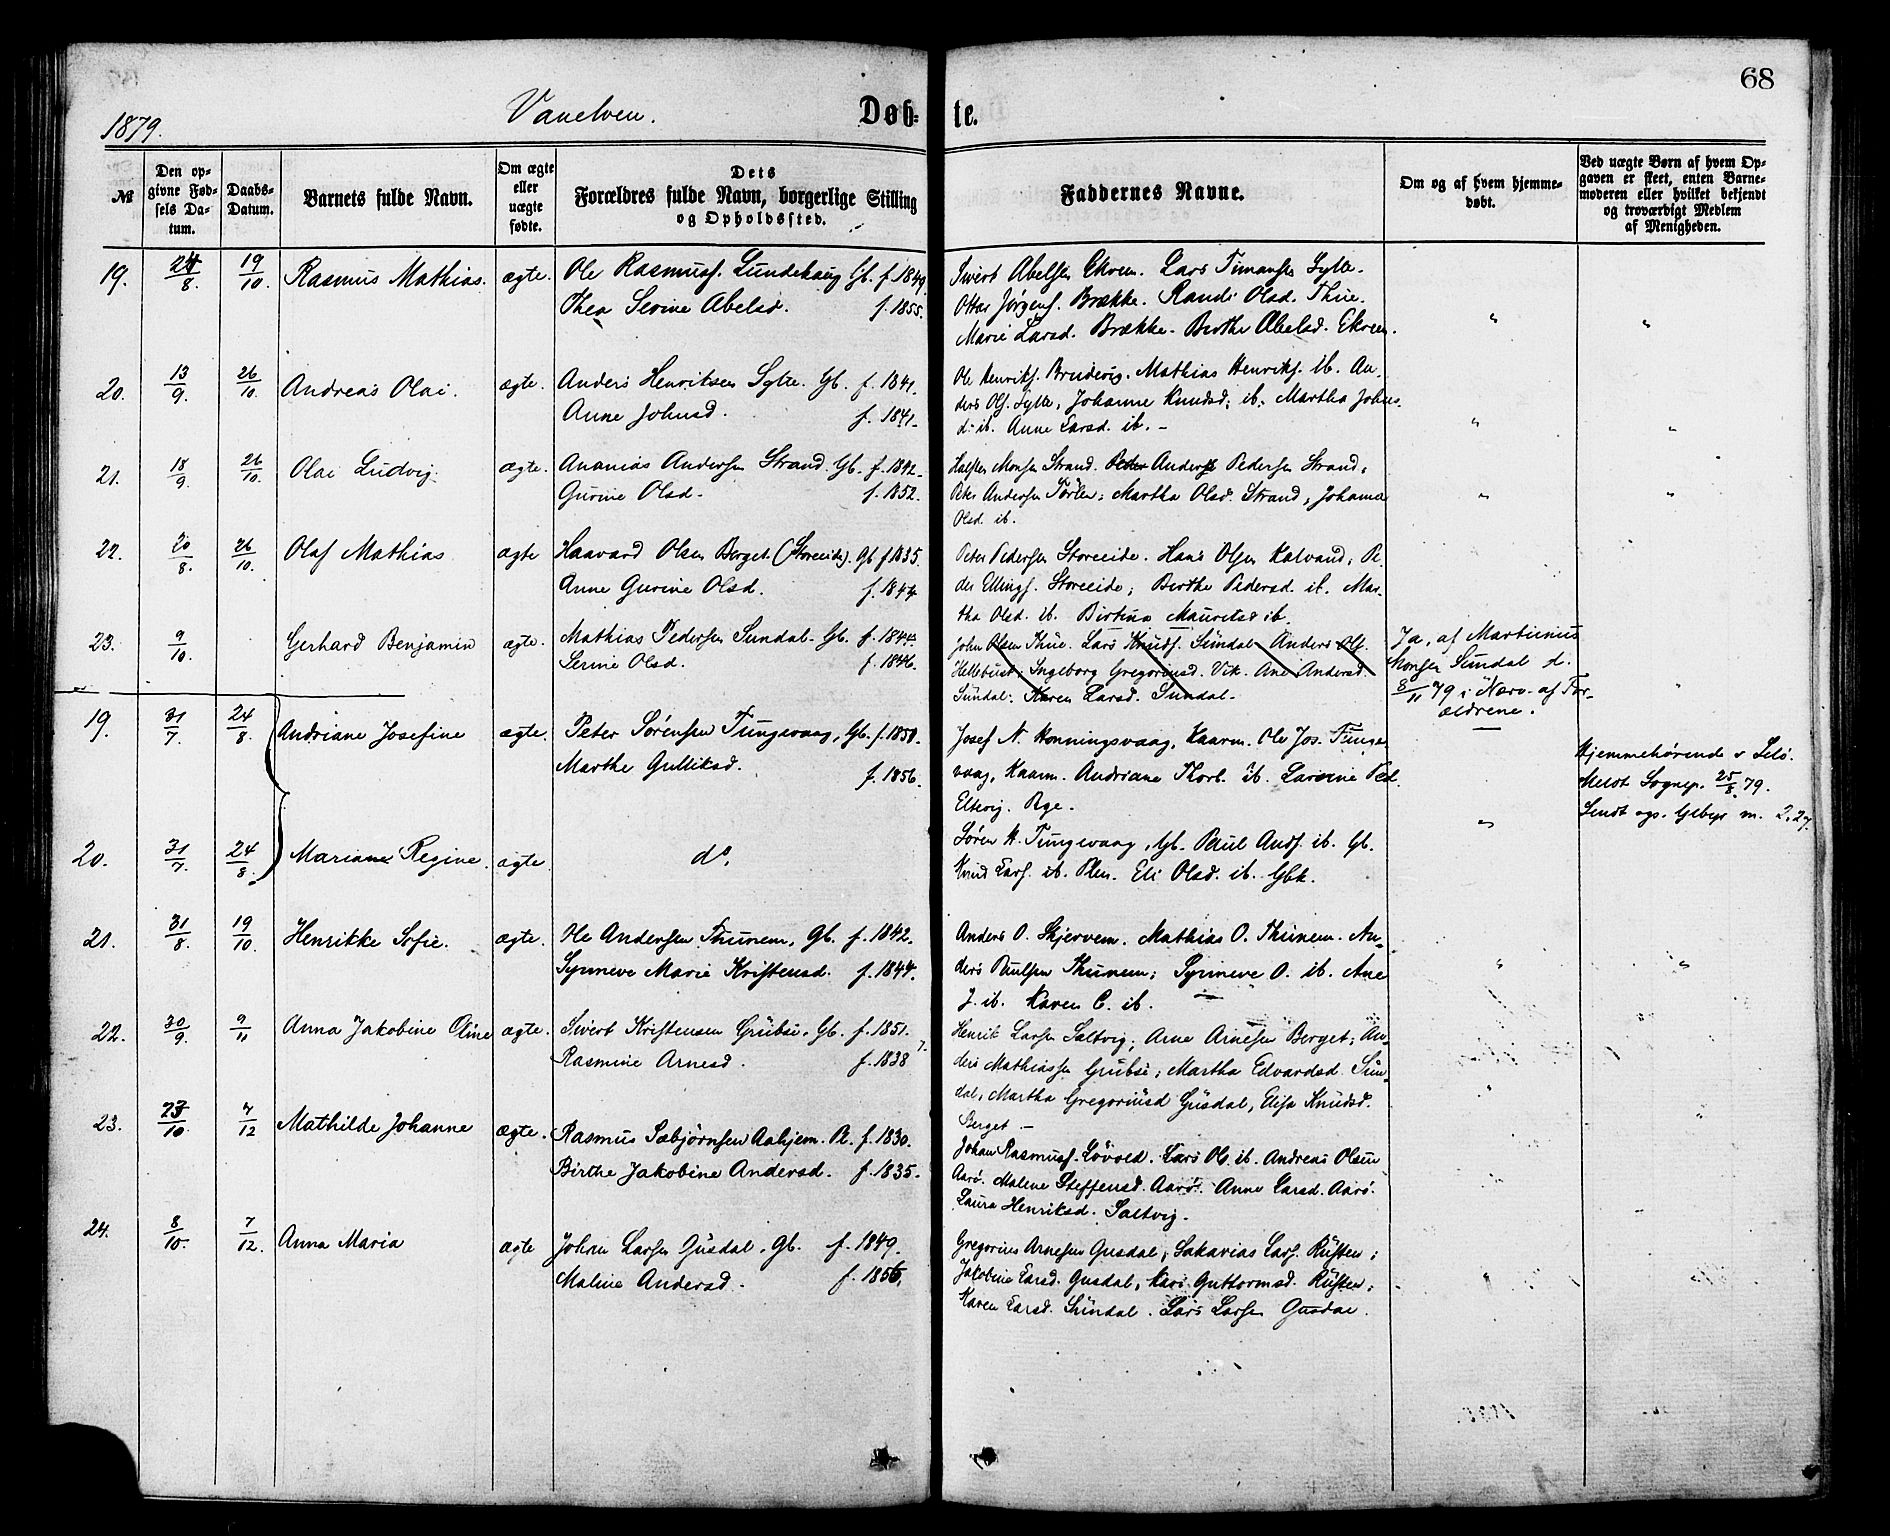 68
1879.
Vanelven.
Døb-
te.
№
Den op-
givne Fød-
sels Da-
tum.
Daabs-
Datum.
Barnets fulde Navn.
Om ægte
eller
uægte
fødte.
Dets
Forældres fulde Navn, borgerlige Stilling
og Opholdssted.
Faddernes Navne.
Om og af hvem hjemme-
døbt.
Ved uægte Børn af hvem Op-
gaven er skeet, enten Barne-
moderen eller hvilket bekjendt
og troværdigt Medlem
af Menigheden.
19. 24/8. 19/10. Rasmus Mathias. ægte. Ole Rasmuss. Lundehaug Gb. f. 1849.
Thea Serine Abelsd. f. 1855.
Sivert Abelsen Ekrem. Lars Timansen Sytte.
Ottar Jørgens. Brække. Randi Olsd. Thue.
Marie Larsd. Brække. Berthe Abelsd. Ekrem.
20. 13/9. 26/10. Andreas Olai. ægte. Anders Henriksen Sytte. Gb. f. 1841.
Anne Johnsd. f. 1841.
Ole Henriks. Brudevig. Mathias Henriks. ib. An-
ders Ols. Sytte, Johanne Knudsd. ib. Martha Johns-
d. ib. Anne Larsd. ib.
21. 18/9. 26/10. Olai Ludvig. ægte. Ananias Andersen Strand. Gb. f. 1842.
Gurine Olsd. f. 1852.
Halsten Monsen Strand. Peder Anders Pedersen Strand,
Peter Andersen; Martha Olsd. Strand, Johanna
Olsd. ib.
22. 20/8. 26/10. Olaf Mathias ægte Haavard Olsen Berget (Storeeide). Gb f. 1835.
Anne Gurine Olsd. f. 1844.
Peter Pedersen Storeeide. Hans Olsen Kalvand; Pe-
der Ellings. Storeeide; Berthe Pedersd. ib. Mar-
tha Olsd. ib. Birtina Mauritsd ib.
23. 9/10. Gerhard Benjamin ægte. Mathias Pedersen Sundal. Gb. f. 1844.
Serine Olsd. f. 1846.
John Olsen Thue. Lars Knuds. Sundal. Anders Ols.
Hellebust. Ingeborg Gregoriusd. Vik. Ane Andersd.
Sundal. Karen Larsd. Sundal.
Ja, af Martinus
Monsen Sundal d.
8/11 79 i Nærv. af For-
ældrene.
19. 31/7. 24/8. Andriane Josefine ægte. Peter Sørensen Tungevaag, Gb. f. 1850.
Marthe Gulliksd. f. 1856.
Josef N. Honningsvaag, Kaarm. Ole Jos. Tunge-
vaag, Kaarm. Andriane Thorb. ib. Lavine Ped.
Eltvig. Pge.
Hjemmehørende i Selø.
Meldt Sognep. 25/8 79.
Sendt ogs. m. 2.27.
20. 31/7. 24/8. Mariane Regine. ægte. do.
Søren H. Tungevaag, Gb. Paul Ands. ib. Gb.
Knud Lars. ib. Eli Olsd. ib. Gbk.
21. 31/8. 19/10. Henrikke Sofie. ægte. Ole Andersen Thunem. Gb. f. 1842.
Synneve Marie Kristensd. f. 1844.
Anders O. Skjervem. Mathias O. Thunem. An-
ders Paulsen Thunem; Synneve O. ib. Ane
J. ib. Karen C. ib.
22. 30/9. 9/11 Anna Jakobine Oline ægte. Sivert Kristensen Grubse. Gb. f. 1851.
Rasmine Arnesd. f. 1838
Henrik Larsen Saltvig; Arne Arnesen Berget; An-
ders Mathiassen Grubse; Martha Edvardsd. Sun-
dal, Martha Gregoriusd Gusdal, Elise Knudsd.
Berget
23. 23/10. 7/12 Mathilde Johanne ægte. Rasmus Sæbjørnsen Aahjem. Pl. f. 1830.
Birthe Jakobine Andersd. f. 1835.
Johan Rasmuss. Løvold. Lars Ols. ib. Andreas Olsen
Aarø. Malene Steffensd. Aarø. Anne Larsd. Aarø.
Laura Henriksd. Saltvig.
24. 8/10. 7/12. Anna Maria ægte Johan Larsen Gusdal. Gb. f. 1849.
Maline Andersd. f. 1856.
Gregorius Arnesen Gusdal; Sakarias Lars. Rusten;
Jakobine Larsd. Gusdal, Kari Guttormsd. Rusten;
Karen Larsd. Sundal. Lars Larsen Gusdal.